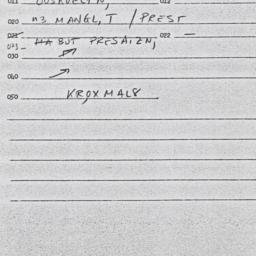 020 n3 MANGL, T / PREST
021 BUT PRESAIZN, 022 —
023
030
040
050 KROXMAL8